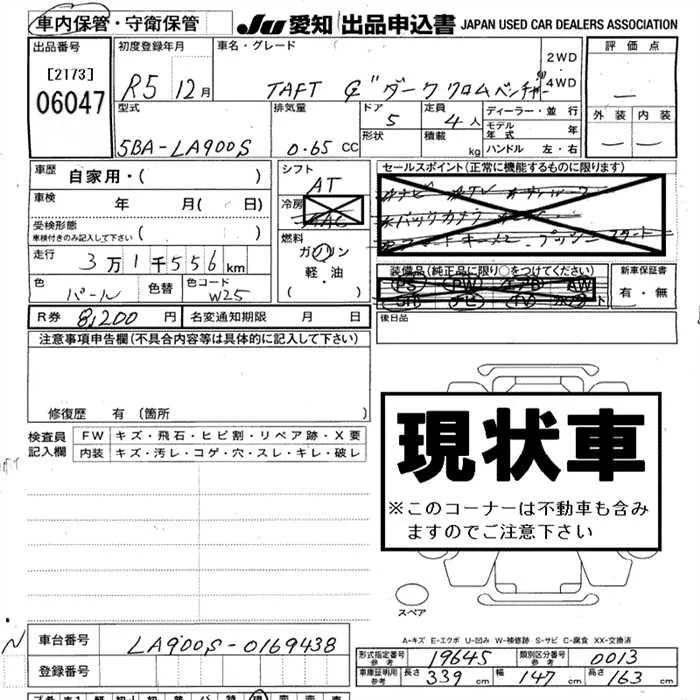 車内保管・守衛保管
JU 愛知 出品申込書 JAPAN USED CAR DEALERS ASSOCIATION
出品番号
[2173]
06047
初度登録年月
R5 12月
車名・グレード
TAFT G "ダーククロムベンチャー"
2WD
4WD
評価点
—
外装 内装
— —
型式
5BA-LA900S
排気量
0.65 CC
ドア
5
形状
定員
4人
積載
kg
ディーラー・並行
モデル年式 年
ハンドル 左・右
車歴 自家用・( )
車検 年 月( 日)
受検形態
車検付きのみ記入して下さい ( )
走行 3万1千556km
色
パール
色替
色コード
W25
シフト
AT
冷房
AAC
燃料
ガソリン
軽・油
( ・ )
セールスポイント(正常に機能するものに限ります)
装備品(純正品に限り○をつけてください)
PS PW エアB AW
SR ナビ TV
新車保証書
有・無
後日品
R券 8,200円
名変通知期限 月 日
注意事項申告欄(不具合内容等は具体的に記入して下さい)
修復歴 有(箇所 )
検査員記入欄
FW キズ・飛石・ヒビ割・リペア跡・X要
内装 キズ・汚レ・コゲ・穴・スレ・キレ・破レ
現状車
※このコーナーは不動車も含み
ますのでご注意下さい
スペア
A-キズ E-エクボ U-凹み W-補修跡 S-サビ C-腐食 XX-交換済
N
車台番号 LA900S-0169438
登録番号
形式指定番号 参考 19645
類別区分番号 参考 0013
車庫証明用 参考 長さ 339cm 幅 147cm 高さ 163cm